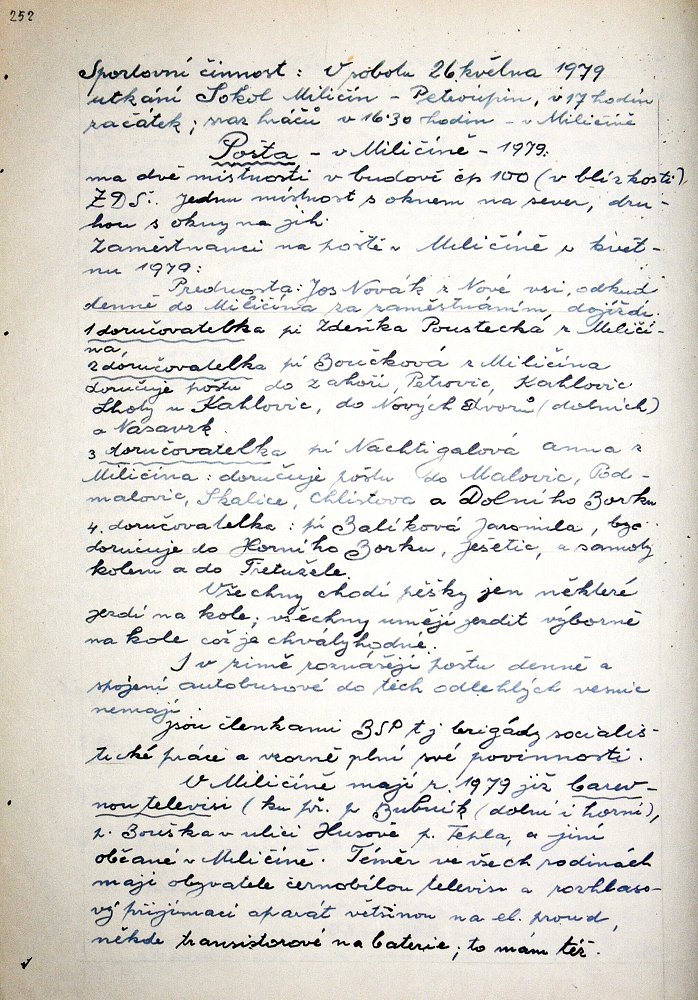 252
Sportovní činnost: V sobotu 26 května 1979
utkání Sokol Miličín - Petroupim, v 17 hodin
začátek; sraz hráčů v 16·30 hodin - v Miličíně
Pošta - v Miličíně - 1979:
ma dvě místnosti v budově čp 100 (v blízkosti)
ZDŠ. jednu místnost s oknem na sever, dru-
hou s okny na jih.
Zaměstnanci na poště v Miličíně v květ-
nu 1979:
Přednosta: Jos Novák z Nové vsi, odkud
denně do Miličína za zaměstnáním, dojíždí.
1 doručovatelka pí Zdeňka Poustecká z Miličí-
na,
2 doručovatelka pí Boučková z Miličína
doručuje poštu do Zahoří, Petrovic, Kahlovic
Lhoty u Kahlovic, do Nových Dvorů (dolních)
a Nasavrk.
3 doručovatelka pí Nachtigalová Anna z
Miličína: doručuje poštu do Malovic, Pod-
malovic, Skalice, Chlístova a Dolního Borku
4. doručovatelka: pí Balíková Jarmila,
doručuje do Horního Borku, Ješetic, a samoty
kolem a do Třetužele.
Všechny chodí pěšky jen některé
jezdí na kole; všechny umějí jezdit výborně
na kole což je chvályhodné.
I v zimě roznášejí poštu denně a
spojení autobusové do těch odlehlých vesnic
nemají
jsou členkami BSP tj brigády socialis-
tické práce a vzorně plní své povinnosti.
V Miličíně mají r. 1979 již barev-
nou televisi (ku př. p Bubník (dolní i horní),
p. Bouška v ulici Husově p. Tepla, a jiní
občané v Miličíně. Téměř ve všech rodinách
mají obyvatele černobílou televisi a rozhlaso-
vý přijímací aparát většinou na el. proud,
někde transistorové na baterie; to mám též.